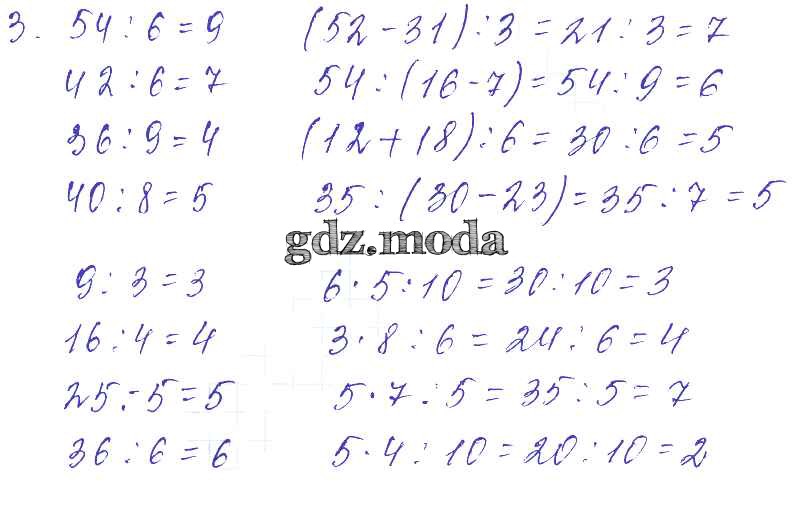 3. 54 : 6 = 9 (52 - 31) : 3 = 21 : 3 = 7
42 : 6 = 7 54 : (16 - 7) = 54 : 9 = 6
36 : 9 = 4 (12 + 18) : 6 = 30 : 6 = 5
40 : 8 = 5 35 : (30 - 23) = 35 : 7 = 5
gdz.moda
9 : 3 = 3 6 · 5 : 10 = 30 : 10 = 3
16 : 4 = 4 3 · 8 : 6 = 24 : 6 = 4
25 : 5 = 5 5 · 7 : 5 = 35 : 5 = 7
36 : 6 = 6 5 · 4 : 10 = 20 : 10 = 2